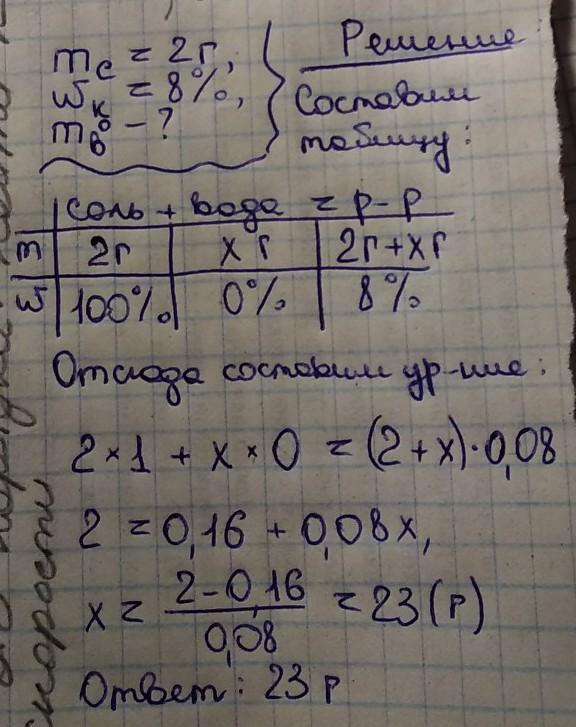 mс = 2г,
Решение
wк = 8%,
Составим
mв - ?
таблицу:
соль + вода = р-р
m 2г x г 2г+xг
w 100% 0% 8%
Отсюда составим ур-ние:
2×1 + x×0 = (2+x)·0,08
2 = 0,16 + 0,08x,
x = 2-0,16 / 0,08 = 23 (г)
Ответ: 23 г
скорости